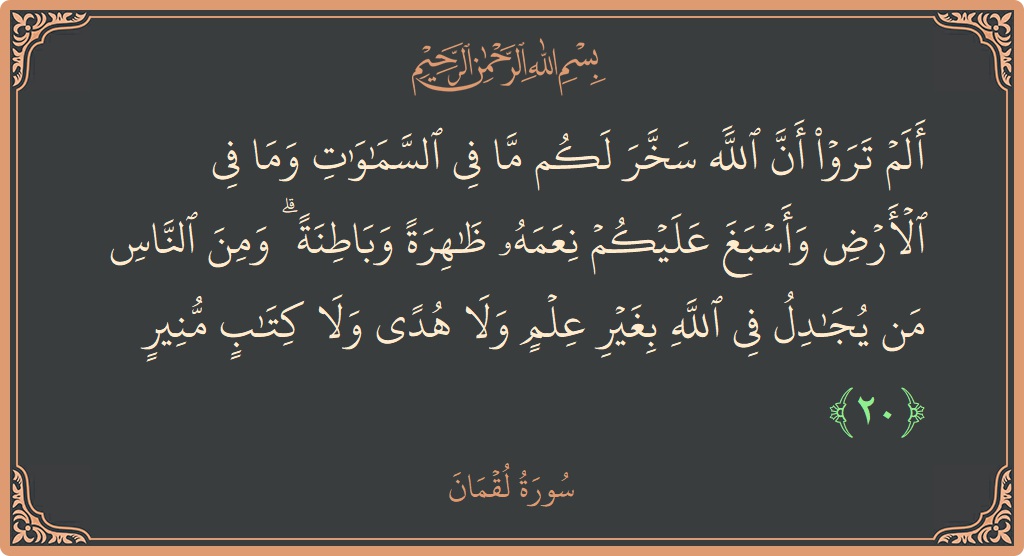 بِسْمِ اللهِ الرَّحْمٰنِ الرَّحِيْمِ
أَلَمۡ تَرَوۡاْ أَنَّ ٱللَّهَ سَخَّرَ لَكُم مَّا فِي ٱلسَّمَٰوَٰتِ وَمَا فِي
ٱلۡأَرۡضِ وَأَسۡبَغَ عَلَيۡكُمۡ نِعَمَهُۥ ظَٰهِرَةً وَبَاطِنَةًۗ وَمِنَ ٱلنَّاسِ
مَن يُجَٰدِلُ فِي ٱللَّهِ بِغَيۡرِ عِلۡمٍ وَلَا هُدًى وَلَا كِتَٰبٍ مُّنِيرٍ
﴿٢٠﴾
سُورَةُ لُقۡمَانَ